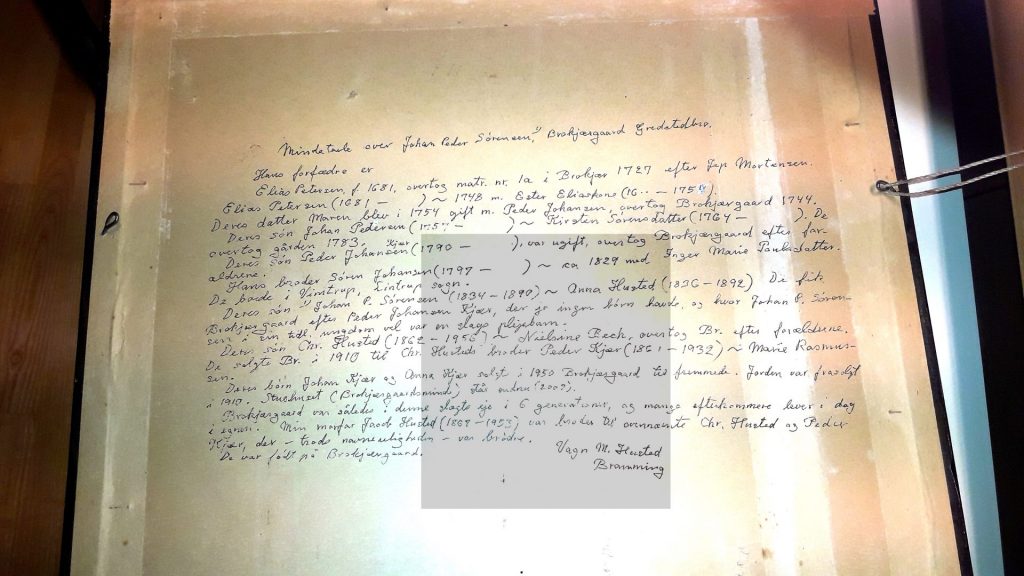 Mindetavle over "Johan Peder Sörensen", Brokjærgaard Gredstedbro.
Hans forfædre er
Elias Petersen, f. 1681, overtog matr. nr. 1a i Brokjær 1727 efter Jep Mortensen.
Elias Petersen (1681 - ) ~ 1743 m. Ester Eliaskone (16.. - 1754)
Deres datter Maren blev i 1754 gift m. Peder Johansen, overtog Brokjærgaard 1744.
Deres sön Johan Pedersen (175. - ) ~ Kirsten Sörensdatter (1764 - ). De
overtog gården 1783.
Deres sön Peder Johansen Kjær (1790 - ), var ugift, overtog Brokjærgaard efter for-
ældrene.
Hans broder Sören Johansen (1797 - ) ~ ca 1829 med Inger Marie Poulsdatter.
De boede i Vimtrup, Jintrup sogn.
Deres sön "Johan P. Sörensen" (1834-1890) ~ Anna Husted (1836-1892) De fik
Brokjærgaard efter Peder Johansen Kjær, der jo ingen börn havde, og hvor Johan P. Sören-
sen i sin tidl. ungdom vel var en slags plejebarn.
Deres sön Chr. Husted (1862-1956) ~ Nielsine Bech, overtog Br. efter forældrene.
De solgte Br. i 1910 til Chr. Husteds broder Peder Kjær (1861-1932) ~ Marie Rasmus-
sen.
Deres börn Johan Kjær og Anna Kjær solgt i 1950 Brokjærgaard til fremmede. Jorden var frasolgt
i 1919. Stuehuset (Brokjærgaardsminde) står endnu (2002).
Brokjærgaard var således i denne slægts eje i 6 generationer, og mange efterkommere lever i dag
i egnen. Min morfar Jacob Husted (1869-1953) var broder til ovennævnte Chr. Husted og Peder
Kjær, der - trods navneuligheden - var brödre.
De var födt på Brokjærgaard.
Vagn M. Husted
Bramming